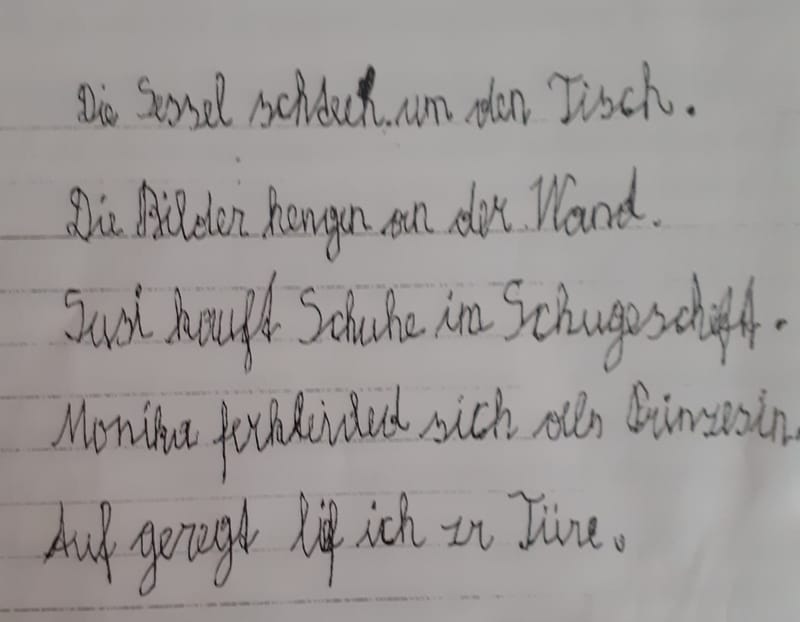 Die Sessel um den Tisch.
Die Bilder hengen an der Wand.
Susi kauft Schuhe im Schugeschift.
Monika ferkleided sich als Brinzesin.
Auf geregt lif ich zr Türe.